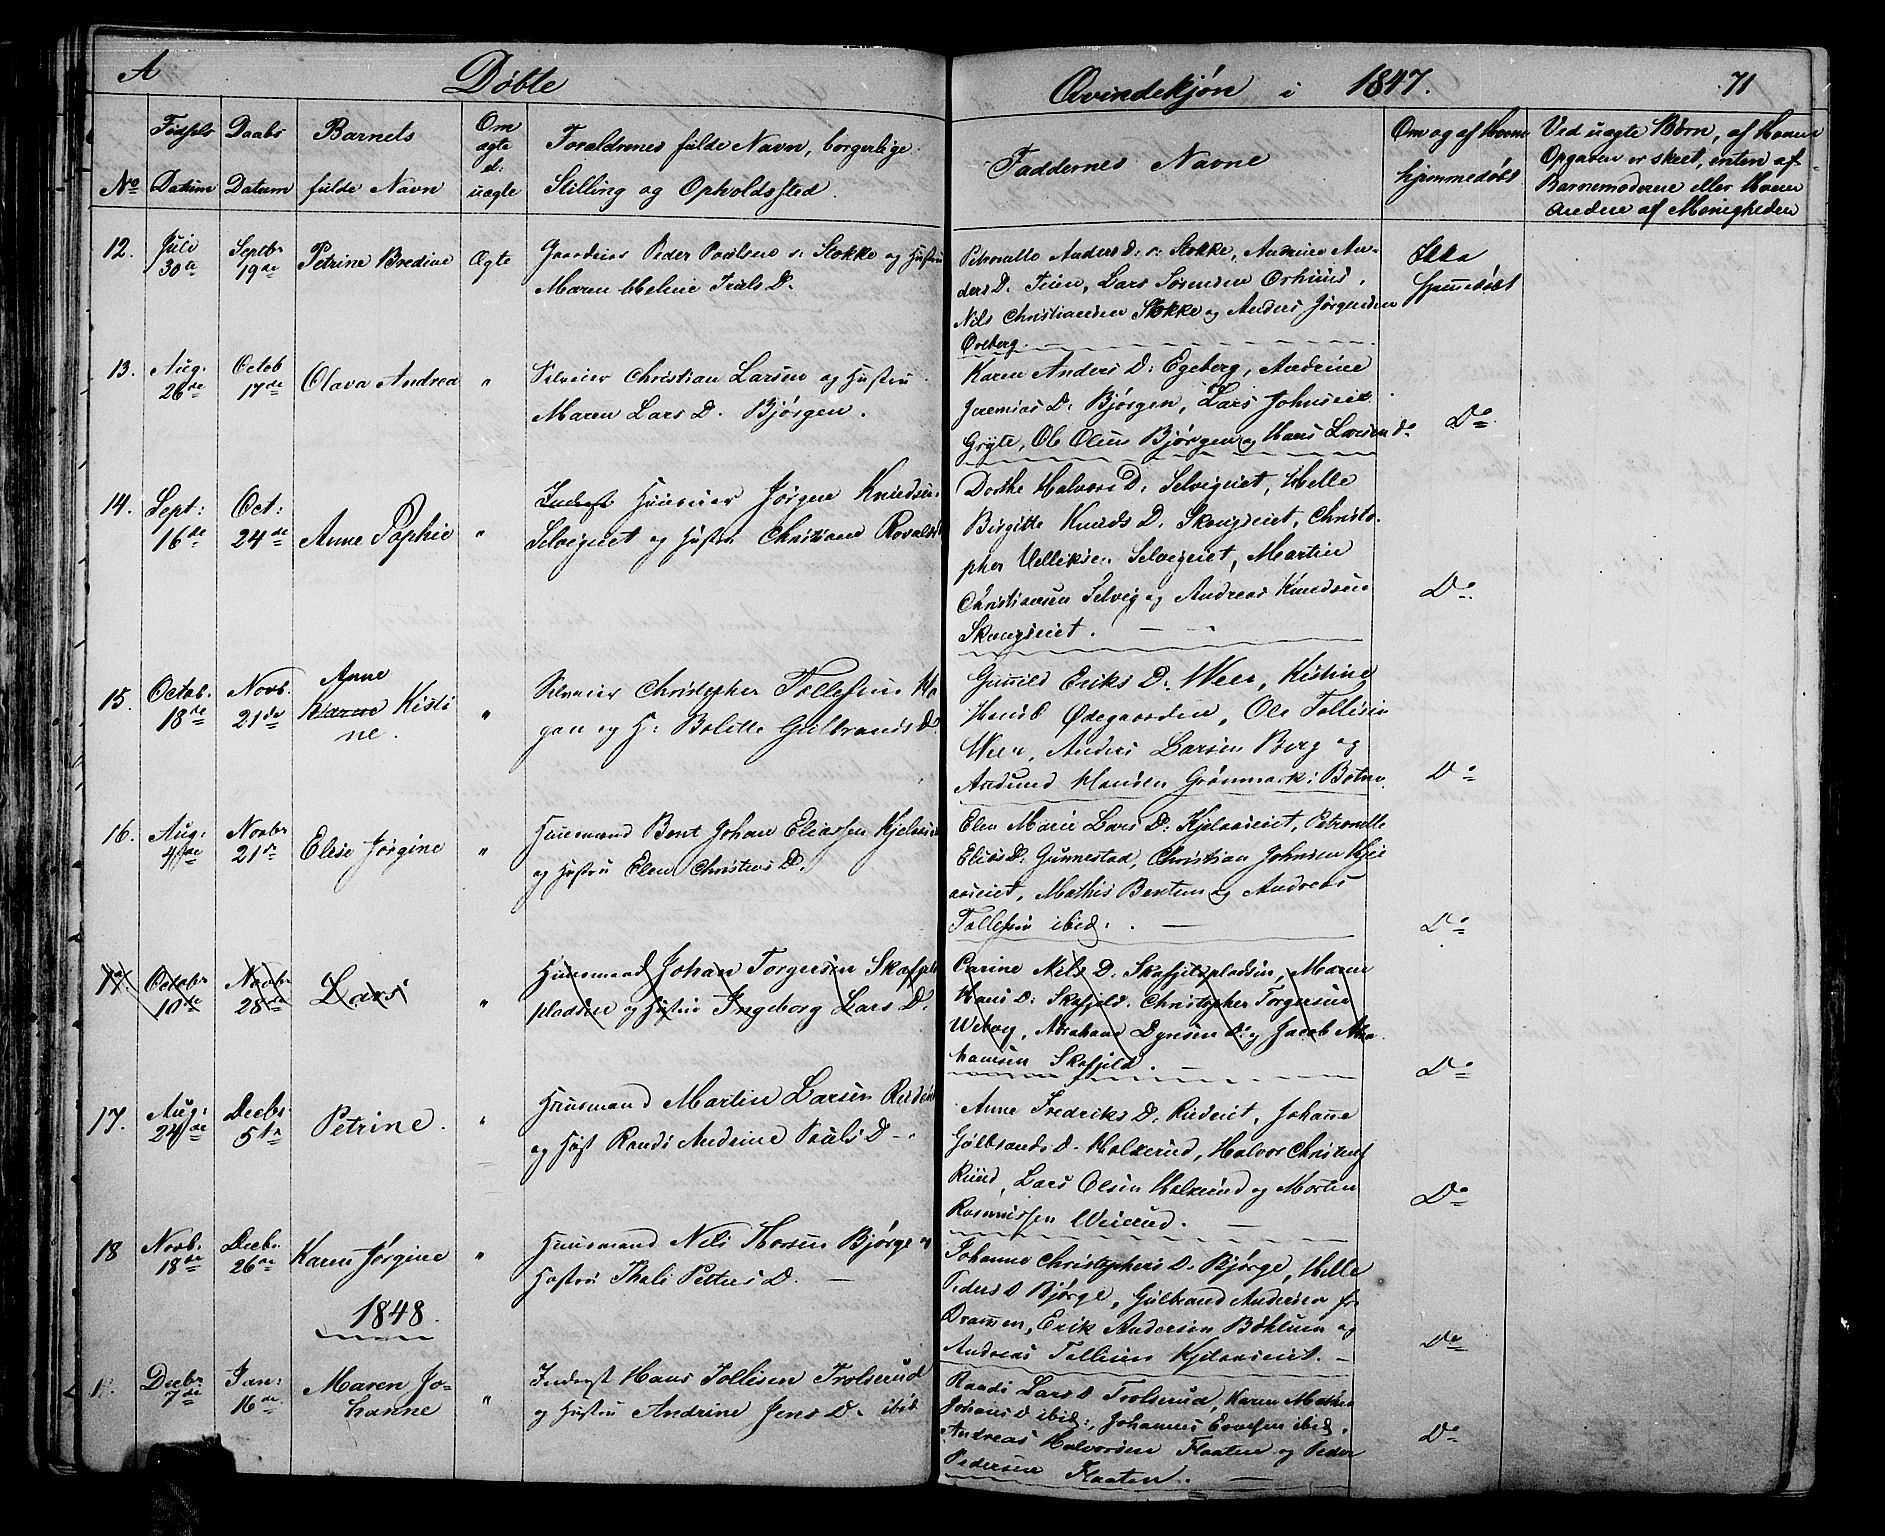 A
Døbte
Qvindekjøn i 1847.
71
No
Fødsels Datum
Daabs Datum
Barnets fulde Navn
Om ægte el: uægte
Forældrenes fulde Navn, borgerlige Stilling og Opholdssted.
Faddernes Navne
Om og af Hvem hjemmedøbt
Ved uægte Børn, af Hvem Opgaven er skeet, enten af Barnemoderene eller Hvem Andere af Menigheden
12.
Juli 30te
Septbr 19de
Petrine Bredine
Ægte
Gaardeier Peder Paulsen s: Stokke og Hustru
Maren Meline Truls D.
Petronelle Anders D. s: Stokke, Andrine An-
ders D. Teien, Lars Sørensen Orhuus,
Nils Christiansen Stokke og Anders Jørgensen
Oreberg.
Ikke
hjemmedøbt
13.
Aug. 26de
Octob 17de
Olava Andrea
"
Selveier Christian Larsen og Hustru
Maren Lars D. Bjørgen.
Karen Anders D: Egeberg, Andrine
Jeremias D: Bjørgen, Lars Johnsen
Gryte, Ole Olsen Bjørgen og Hans Larsen do
Do
14.
Sept: 16de
Oct: 24de
Anne Sophie
"
Inderst Huuseier Jørgen Knudsen
Selvigeiet og Hustru Christiane Rovalds D
Dorthe Halvors D: Selvigeiet, Helle
Birgitte Knuds D. Skougseiet, Christo-
pher Ulleksen Selvigeiet, Martin
Christiansen Selvig og Andreas Knudsen
Skougseiet.
Do
15.
Octob. 18de
Novb. 21de
Anne
Karen Kisti
ne.
"
Selveier Christopher Tollefsen Ha
gan og H: Bolette Gulbrands D.
Gunnild Eriks D. Weer, Kistine
Hans D Ødegaarden, Ole Tollefsen
Weer, Anders Larsen Berg og
Amund Hansen Grønmark i Botne
Do
16.
Aug: 4de
Novbr 21de
Elise Jørgine
"
Huusmand Bent Johan Eliassen Kjelaas
og Hustru Elen Christens D.
Elen Marie Lars D: Kjelaaseiet, Petronelle
Elias D: Gunnestad, Christian Johnsen Kjel
aaseiet, Mathis Bentsen og Andreas
Tollefsen ibid:
Do
17.
Octobr 10de
Novbr 28de
Lars
"
Huusmand Johan Torgersen Skafjeld
pladsen og Hustru Ingeborg Lars D.
Carine Nils D. Skafjeldpladsen, Maren
Hans D: Skafjeld. Christopher Torgersen
Wetvg, Abraham Dynesen Do og Jacob Abra
hamsen Skafjeld.
Do
17.
Aug: 24de
Decbr 5te
Petrine.
"
Huusmand Martin Larsen Rudeiet
og Hust Randi Andrine Pauls D
Anne Fredriks D. Rudeiet, Johanne
Gulbrands D. Holkerud, Halvor Christens
Ruud, Lars Olsen Holkerud og Morten
Rasmussen Weierud.
Do
18
Novb. 18de
Decbr. 26de
Karen Jørgine
"
Huusmand Nils Thorsen Bjørge og
Hustru Thale Petters D.
Johanne Christophers D. Bjørge, Helle
Peders D Bjørge, Gulbrand Andersen fr
Drammen, Erik Andersen Bøhlum og
Andreas Tollesen Kjelaaseiet.
Do
1848.
1.
Decbr 7de
Jan: 16de
Maren Jo-
hanne
"
Inderst Hans Tollesen Trolsrud
og Hustru Andrine Jens D. ibid
Randi Lars D Trolserud, Karen Mathea
Johans D ibid:, Johannes Evensen ibid.
Andreas Halvorsen Flaaten og Peder
Pedersen Flaaten.
Do